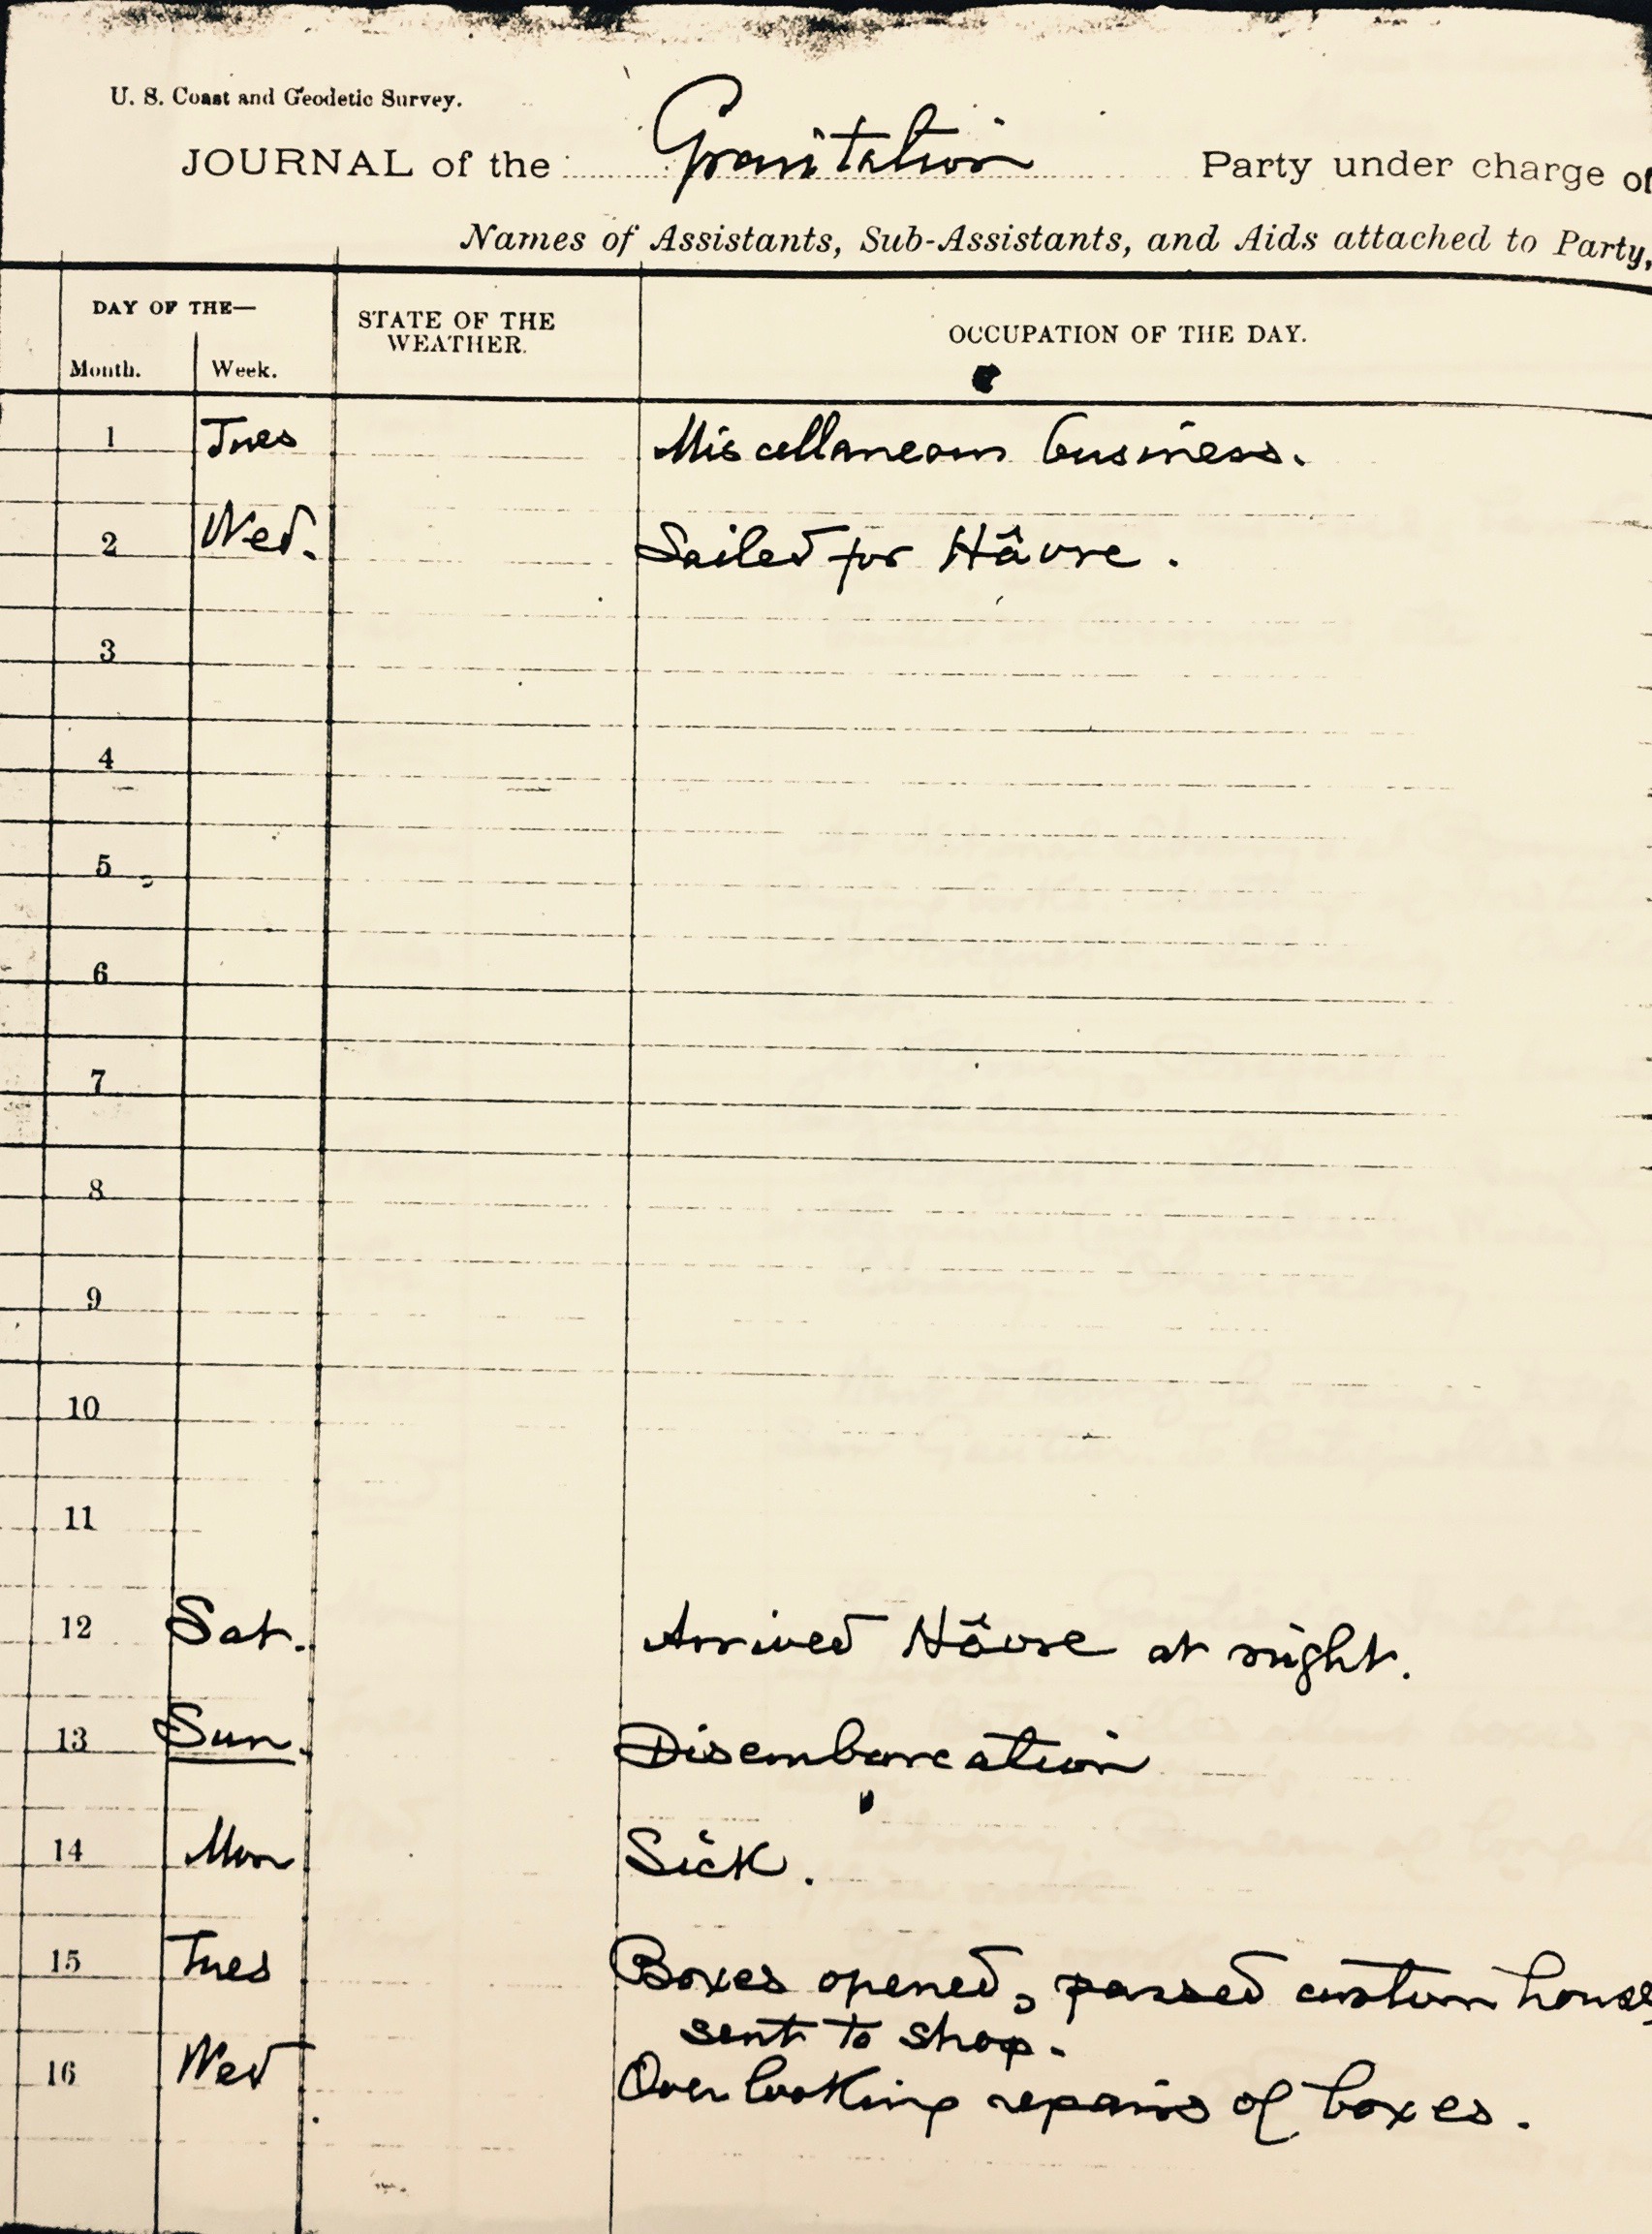 U. S. Coast and Geodetic Survey.
JOURNAL of the Gravitation Party under charge of
Names of Assistants, Sub-Assistants, and Aids attached to Party,
DAY OF THE—
STATE OF THE
WEATHER.
OCCUPATION OF THE DAY.
Month. Week.
1 Tues Miscellaneous business.
2 Wed. Sailed for Hâvre.
3
4
5
6
7
8
9
10
11
12 Sat. Arrived Hâvre at night.
13 Sun. Disembarcation
14 Mon Sick.
15 Tues Boxes opened, passed custom house,
sent to shop.
16 Wed Overlooking repairs of boxes.